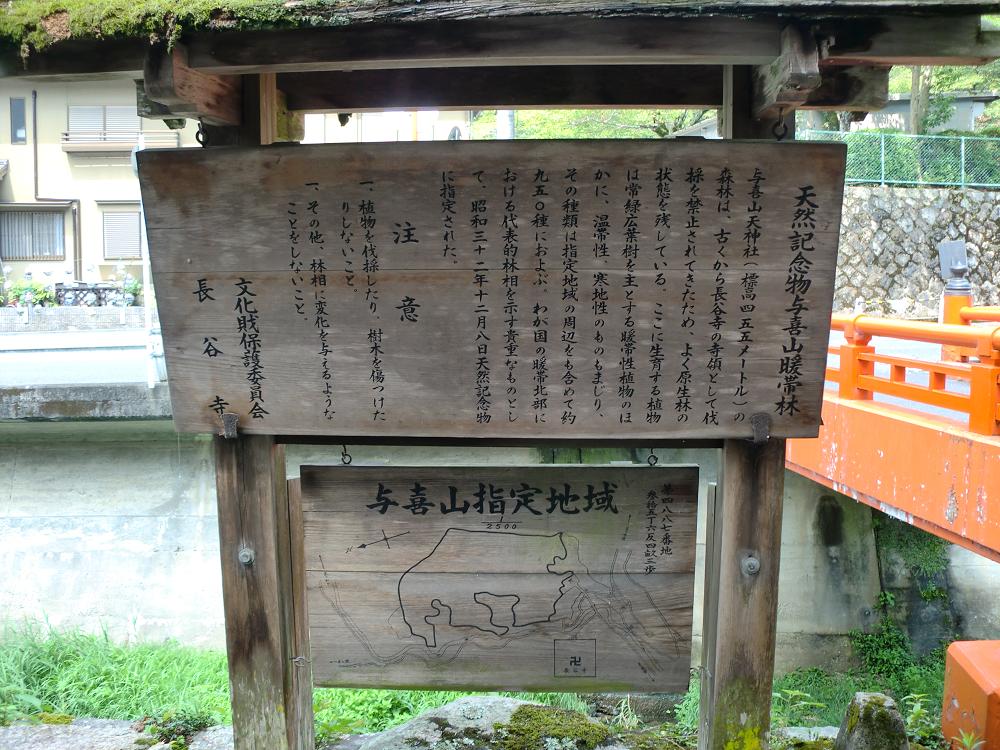 天然記念物与喜山暖帯林
与喜山天神社(標高四五五メートル)の
森林は、古くから長谷寺の寺領として伐
採を禁止されてきたため、よく原生林の
状態を残している。ここに生育する植物
は常緑広葉樹を主とする暖帯性植物のほ
かに、温帯性、寒地性のものもまじり、
その種類は指定地域の周辺をも含めて約
九五〇種におよぶ。わが国の暖帯北部に
おける代表的林相を示す貴重なものとし
て、昭和三十二年十二月八日天然記念物
に指定された。
注意
一、植物を伐採したり、樹木を傷つけた
りしないこと。
一、その他、林相に変化を与えるような
ことをしないこと。
文化財保護委員会
長谷寺
与喜山指定地域
1
2500
第四八八七番地
参拾五丁六反四畝三歩
卍